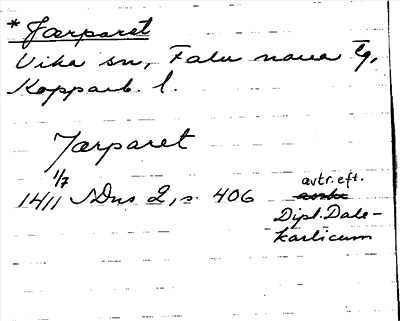 * Jærparet
Vika sn, Falu norra tg,
Kopparb. l.
Jærparet
1/7 1411 SDns 2, s. 406
avtr. eft.
Dipl. Dale-
karlicum